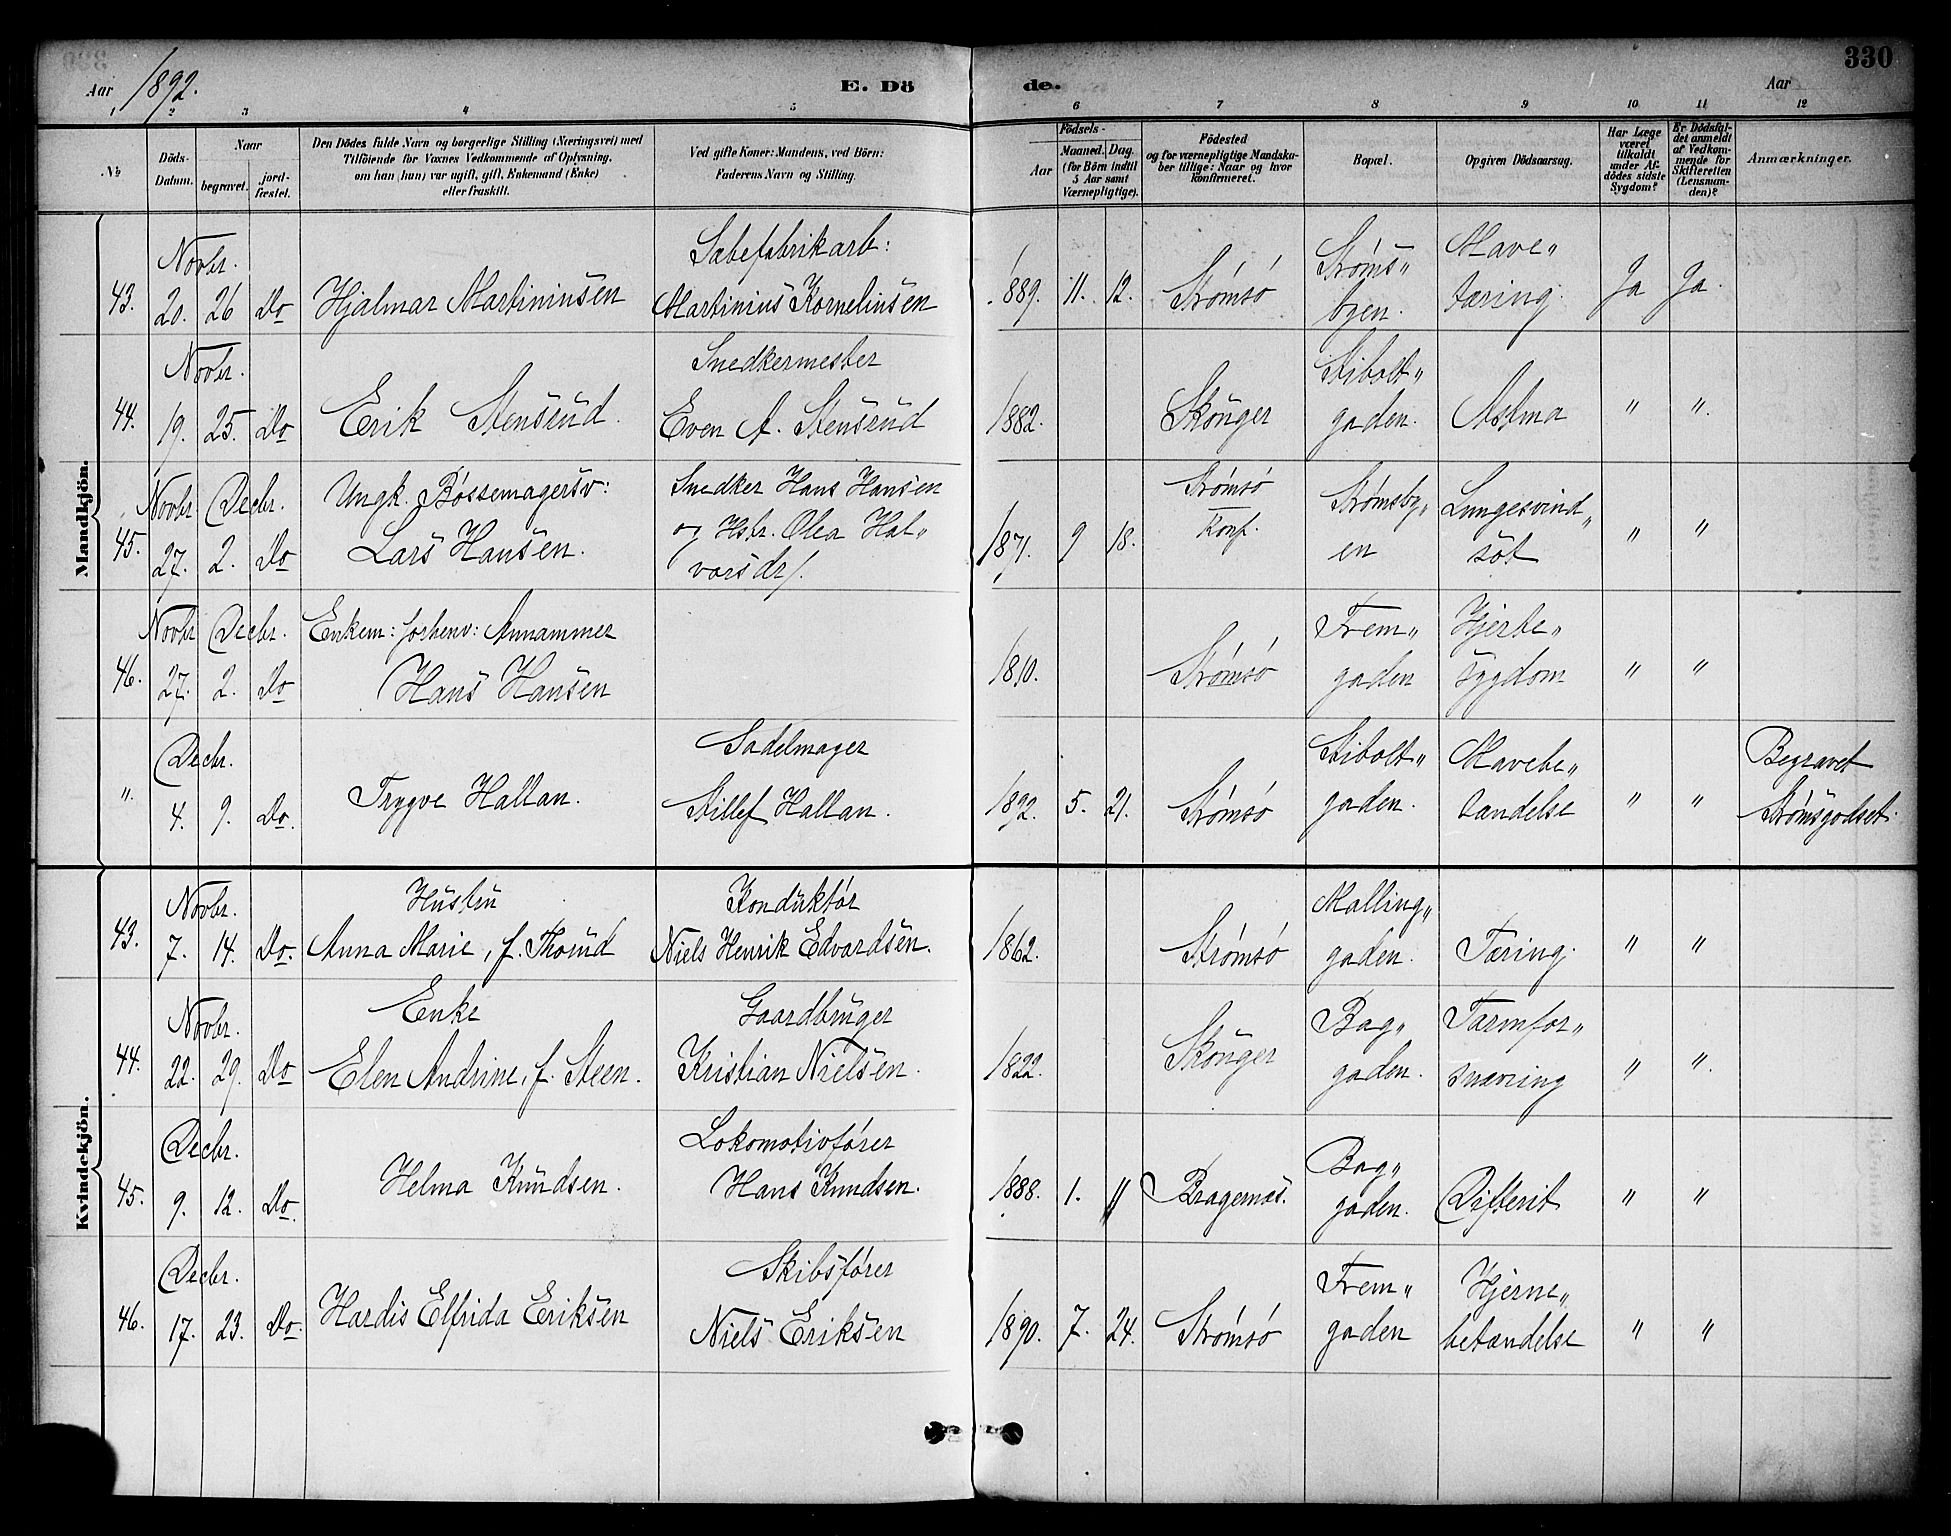 Aar 1892. E. Dö de. Aar 330
1 2 3 4 5 6 7 8 9 10 11 12
No
Döds-Datum.
Naar
begravet.
jord-fæstet.
Den Dödes fulde Navn og borgerlige Stilling (Næringsvei) med
Tilföiende for Voxnes Vedkommende af Oplysning,
om han (hun) var ugift, gift, Enkemand (Enke)
eller fraskilt.
Ved gifte Koner: Mandens, ved Börn:
Faderens Navn og Stilling.
Födsels-
Aar
Maaned. Dag.
(for Börn indtil
5 Aar samt
Værnepligtige).
Födested
og for værnepligtige Mandska-
ber tillige: Naar og hvor
konfirmeret.
Bopæl.
Opgiven Dödsaarsag.
Har Læge
været
tilkaldt
under Af-
dödes sidste
Sygdom?
Er Dödsfal-
det anmeldt
af Vedkom-
mende for
Skifteretten
(Lensman-
den)?
Anmærkninger.
Mandkjön.
43. Novbr. 20. 26 Do Hjalmar Martiniusen
Sæbefabrikarb:
Martinius Korneliusen
1889. 11. 12. Strømsø
Strøms„
byen.
Mave„
tæring.
Ja Ja.
44. Novbr. 19. 25. Do Erik Stensrud.
Snedkermester
Even A. Stensrud
1882. Skouger
Stibolt„
gaden.
Astma
„ „.
45. Novbr 27. Decbr. 2. Do
Ungk. Bøssemagersv:
Lars Hansen.
Snedker Hans Hansen
og Hstr. Olea Hal„
vorsdr/.
1871. 9 18.
Strømsø
Konf.
Strømsby„
en
Lungesvind„
sot
„ „
46. Novbr 27. Decbr. 2. Do
Enkem: forhenv: Annammer
Hans Hansen
1810. Strømsø
Frem„
gaden
Hjerte„
sygdom
„ „
„. Decbr. 4. 9. Do. Trygve Hallan.
Sadelmager
Stillef Hallan.
1892. 5. 21. Strømsø
Stibolt„
gaden.
Mavebe„
tændelse
„ „
Begravet
Strømsgodset.
Kvindekjön.
43. Novbr. 7. 14. Do.
Hustru
Anna Marie, f. Thorud
Konduktør
Niels Henrik Edvardsen.
1862. Strømsø
Malling„
gaden.
Tæring.
„ „
44. Novbr. 22. 29. Do
Enke
Elen Andrine, f. Steen.
Gaardbruger
Kristian Nielsen.
1822. Skouger
Bag„
gaden.
Tarmfor„
snævring
„ „.
45. Decbr. 9. 12. Do. Helma Knudsen.
Lokomotivfører
Hans Knudsen.
1888. 1. 11 Bragernæs.
Bag„
gaden.
Difterit
„ „
46. Decbr. 17. 23. Do. Hardis Elfrida Eriksen
Skibsfører
Niels Eriksen
1890. 7. 24. Strømsø
Frem„
gaden
Hjerne„
betændelse
„ „